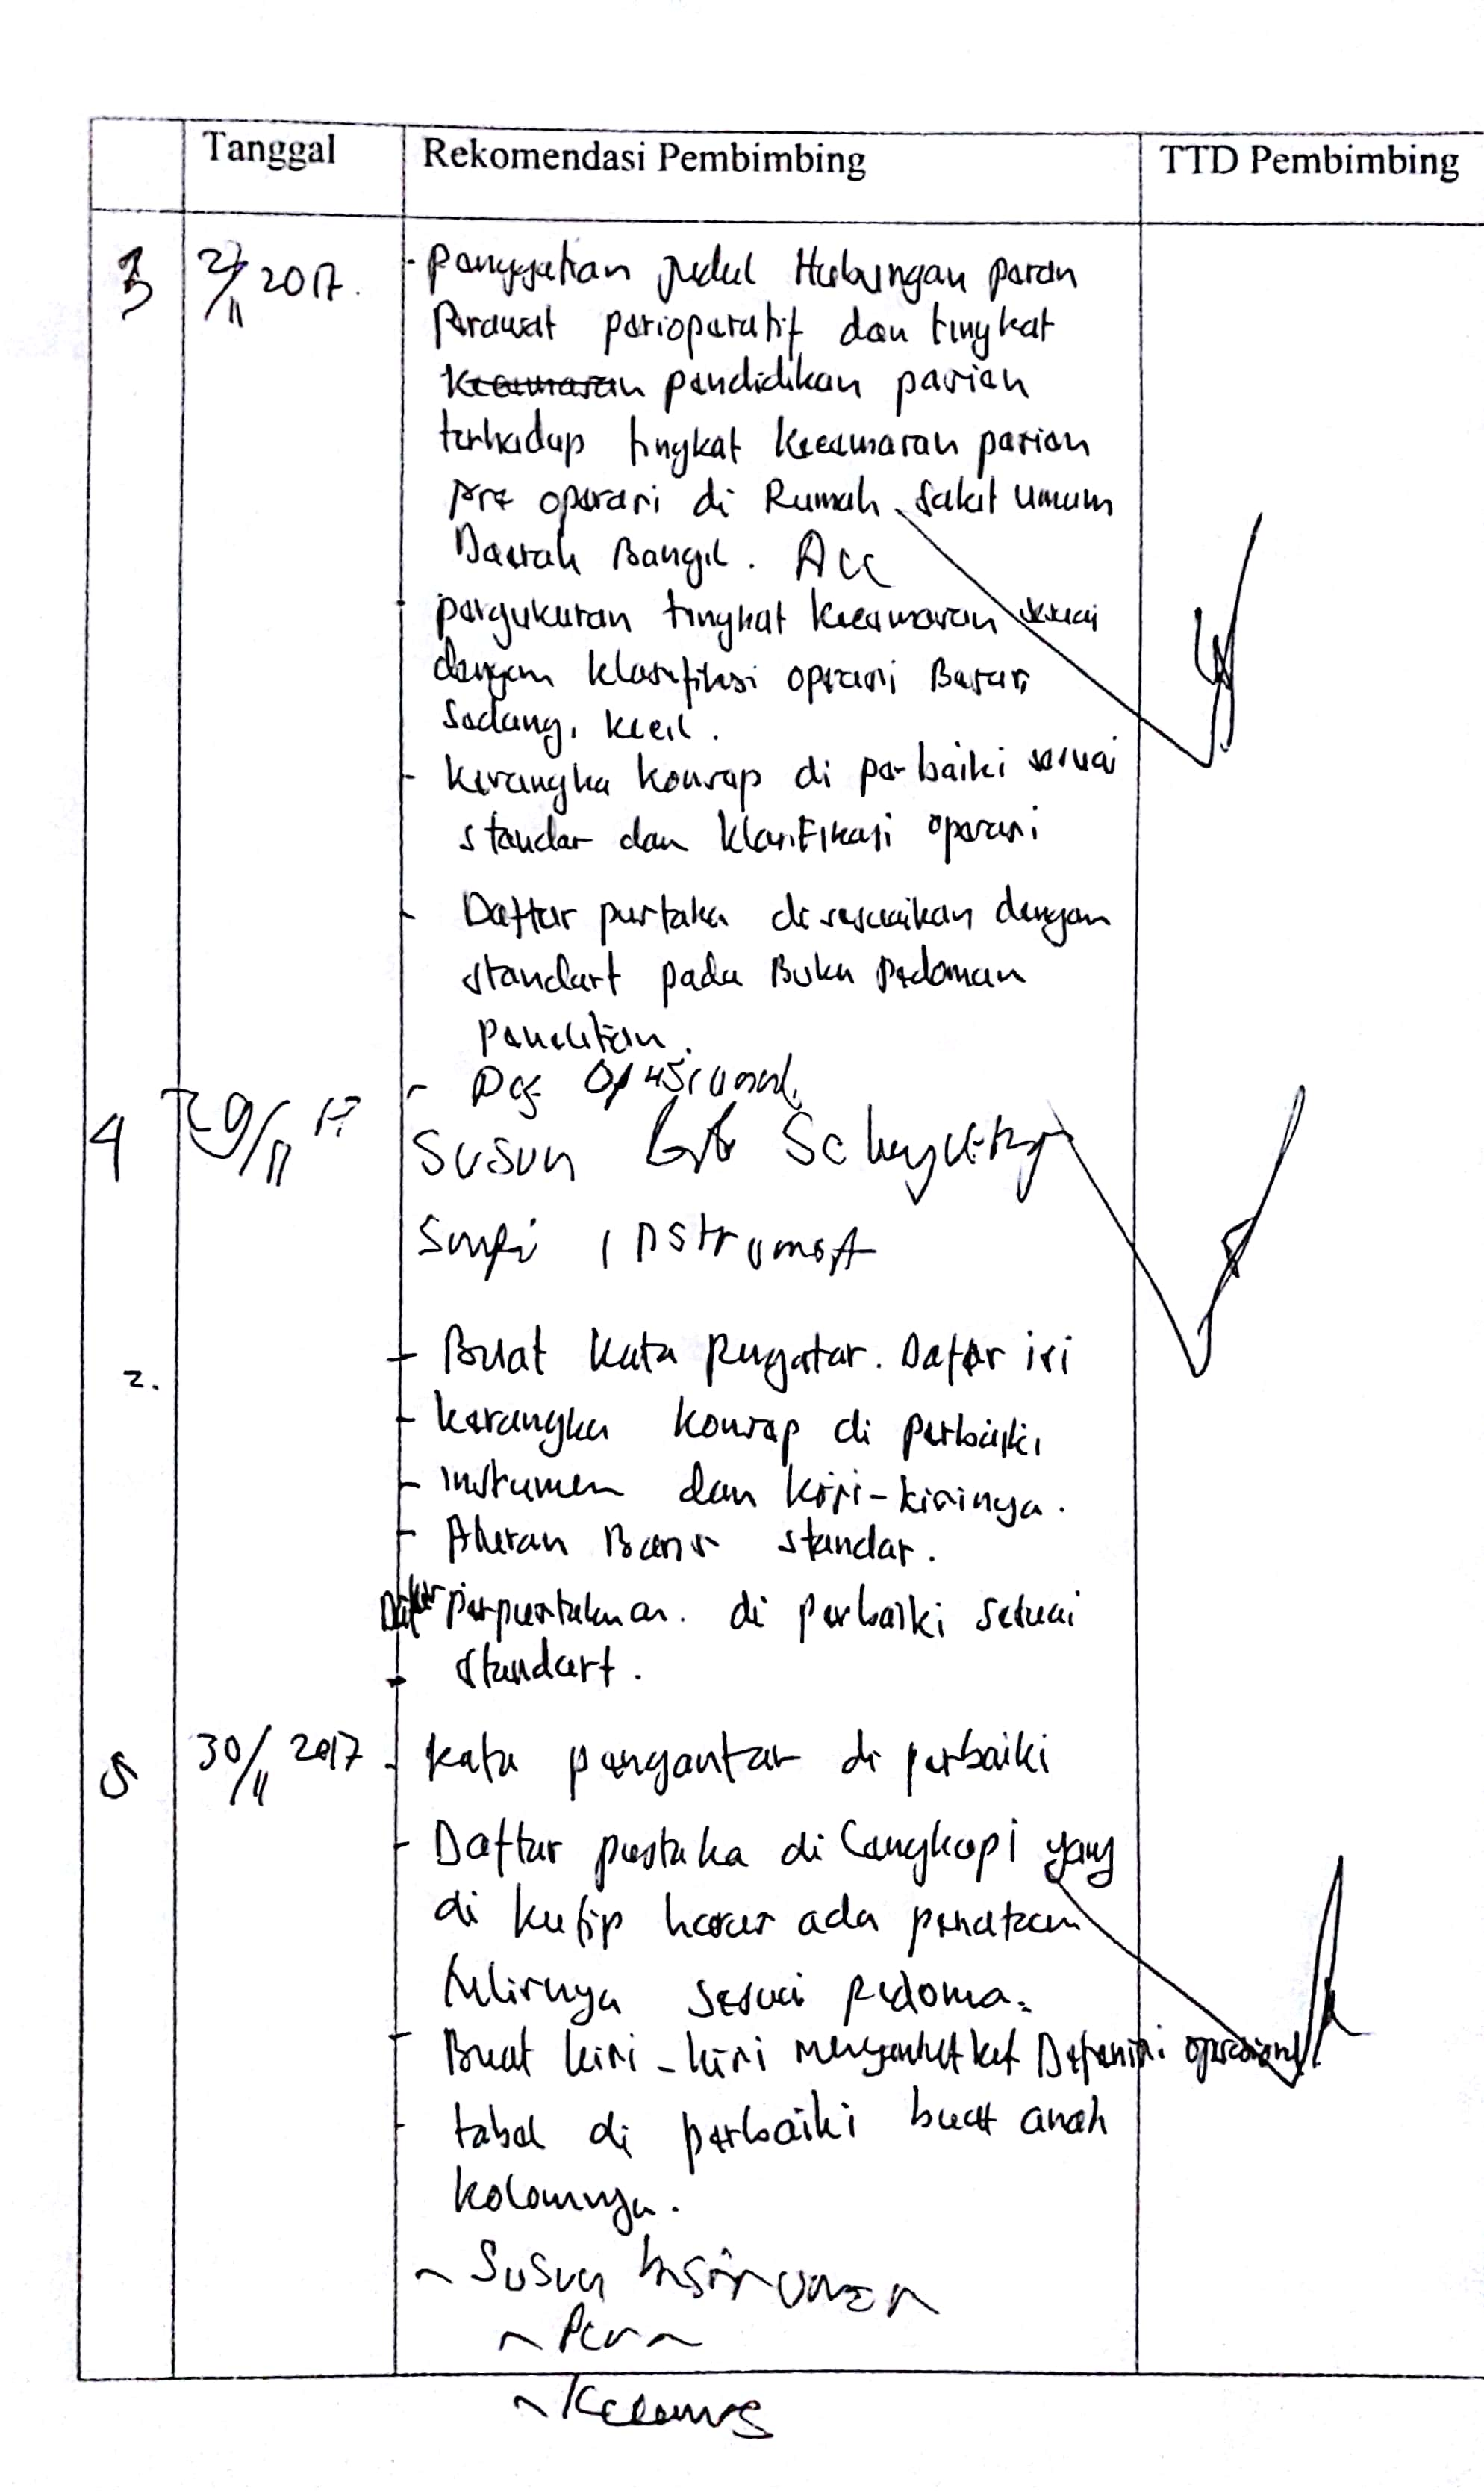 Tanggal Rekomendasi Pembimbing TTD Pembimbing
3 2/11 2017. - Panggatian judul Hubungan peran
Perawat perioperatif dan tingkat
pendidikan pasien
terhadap tingkat kecemasan pasien
pre operasi di Rumah Sakit Umum
Daerah Bangil. Acc
- pengukuran tingkat kecemasan sesuai
dengan klasifikasi operasi Besar,
Sedang, kecil.
- kerangka konsep di perbaiki sesuai
standar dan klasifikasi operasi
- Daftar pustaka di sesuaikan dengan
standart pada Buku Pedoman
Penelitian.
4 29/11 17 - Def Opersional
Susun Selengkap
Sampai instrument
2. - Buat kata pengatar. Daftar isi
- kerangka konsep di perbaiki
- Instumen dan kisi-kisinya.
- Aturan Baris standar.
Daftar Perpustakaan. di perbaiki sesuai
- standart.
5 30/11 2017 - kata pengantar di perbaiki
- Daftar pustaka di Cangkopi yang
di kutip harus ada
sesuai Pedoma.
- Buat kisi-kisi Definisi operasional
- tabel di perbaiki buat anak
kolomnya.
~ Susun Instrumen
~ Peran
~ Kecemas